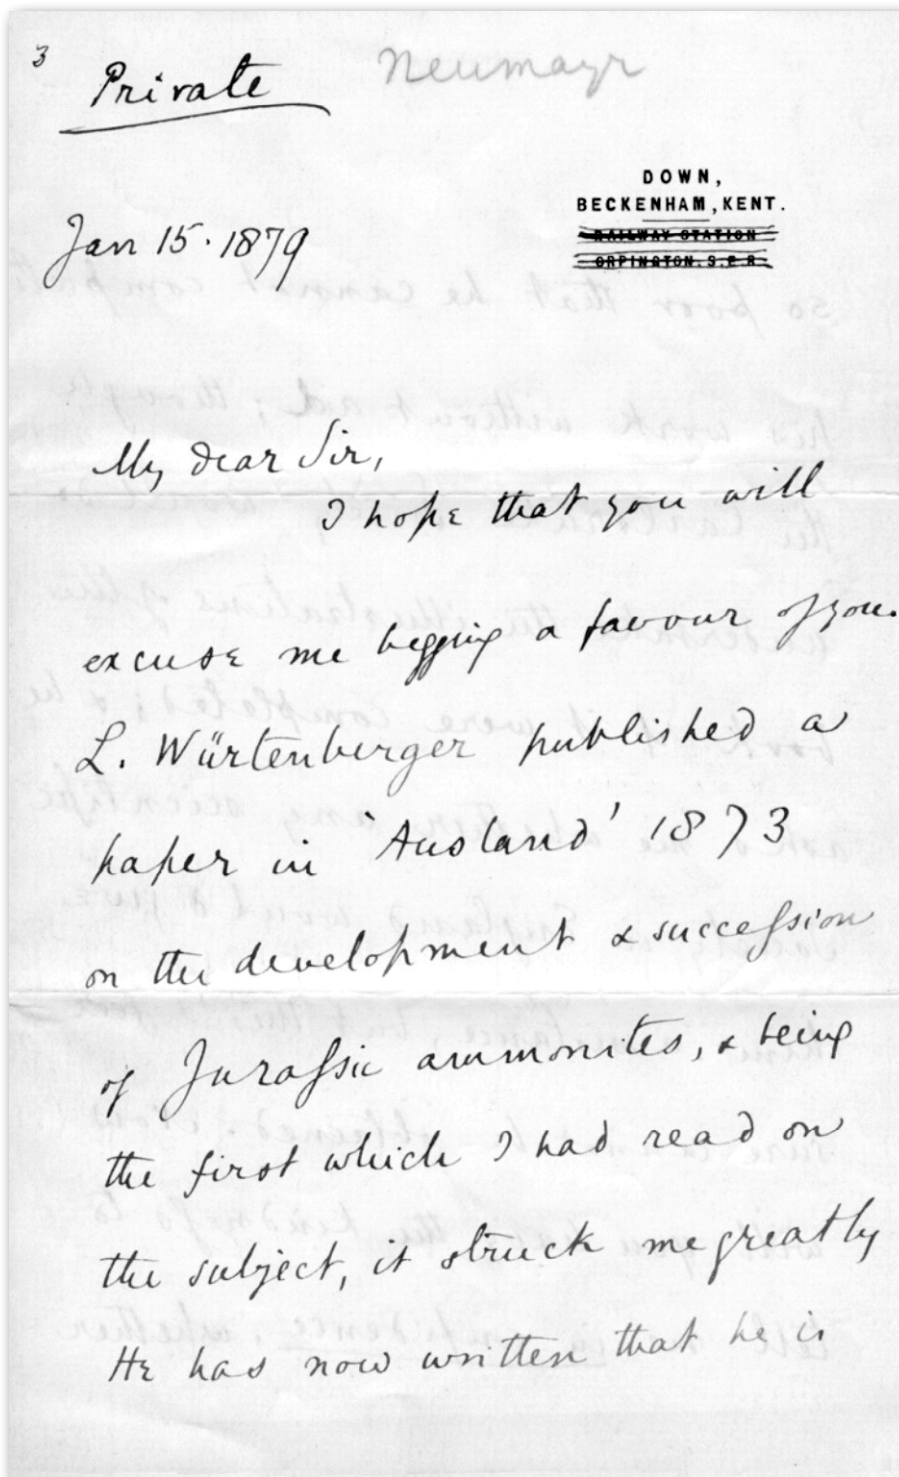 3
Private
Neumayr
DOWN,
BECKENHAM, KENT.
RAILWAY STATION
ORPINGTON. S.E.R.
Jan 15. 1879
My dear Sir,
I hope that you will
excuse me begging a favour of you.
L. Würtenberger published a
paper in 'Ausland' 1873
on the development & succession
of Jurassic ammonites, & being
the first which I had read on
the subject, it struck me greatly
He has now written that he is